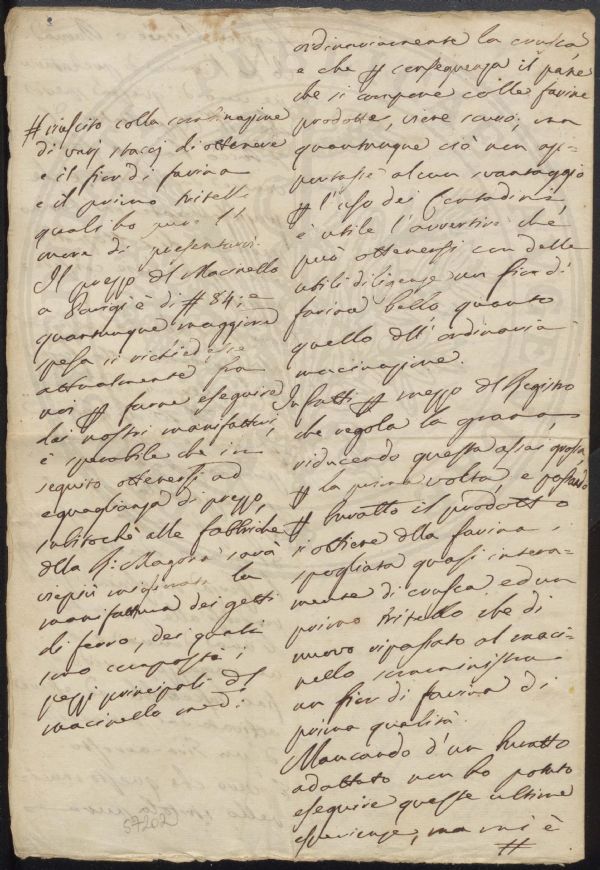 ordinariamente la crusca,
e che # conseguenza il pane
che si compone colle farine
prodotte, viene scuro, ma
quantunque ciò non ap-
portasse alcun svantaggio
# l'uso dei Contadini,
è utile l'avvertire che
può ottenersi con delle
utili diligenze un fior di
farina bello quanto
quello dell'ordinaria
macinazione.
Infatti # mezzo del Registro
che regola la grana
riducendo questa assai grossa
# la prima volta, e passando
# buratto il prodotto
si ottiene della farina
spogliata quasi intera-
mente di crusca ed un
primo tritello che di
nuovo ripassato al maci-
nello somministra
un fior di farina di
prima qualità.
Mancando d'un buratto
adattato non ho potuto
eseguire queste ultime
esperienze, ma mi è
#
# riuscito colla combinazione
di varj stacci di ottenere
e il fior di farina
e il primo tritello
quali ho
di presentarvi.
Il prezzo del Macinello
a Parigi è di # 84; e
quantunque maggiore
spesa si richiedesse
attualmente fra
noi # farne eseguire
dai nostri manifattori,
è sperabile che in
seguito ottenersi ad
eguaglianza di prezzo,
subitochè alle fabbriche
della R. Magona sarà
vie più migliorata la
manifattura dei getti
di ferro, dei quali
sono composti i
pezzi principali del
macinello medº
57202